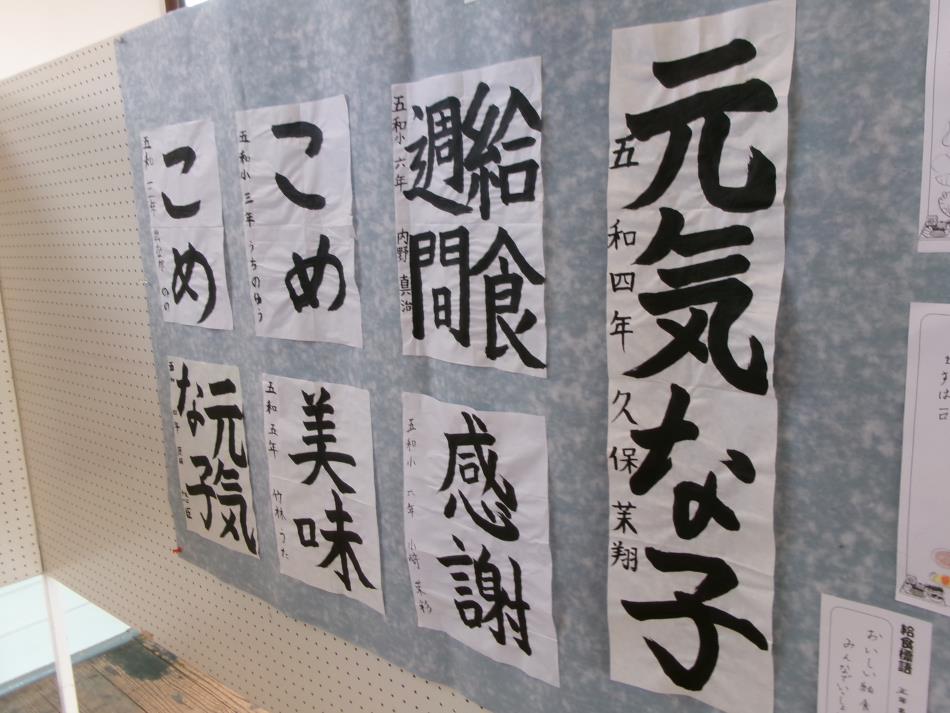 元気な子
五和四年 久保茉翔
給食
週間
五和小 六年 内野真治
感謝
五和小 六年 小崎
こめ
五和小 三年 うちのゆう
美味
五和五年 竹林 うた
こめ
五和
元気
な子
給食標語
おいしい給食